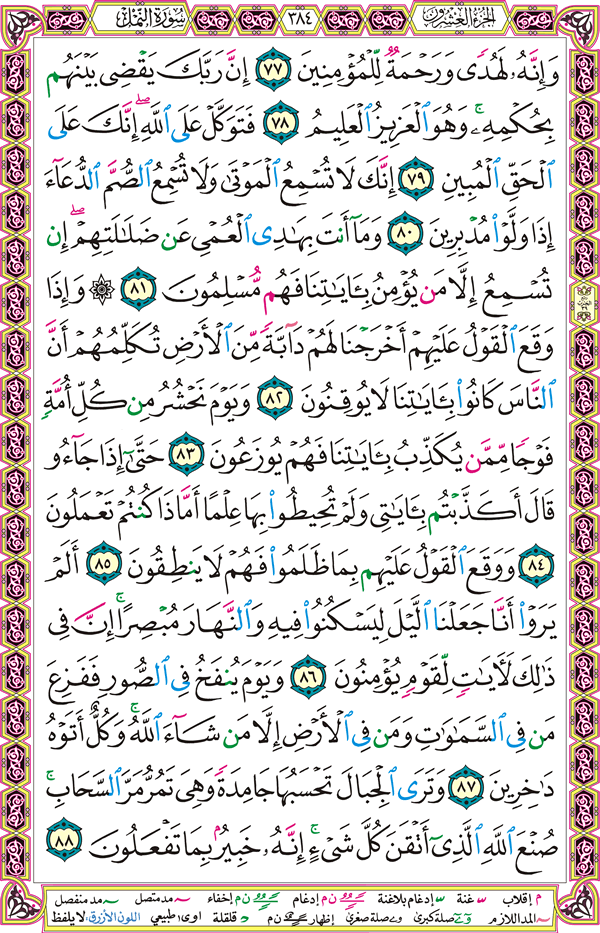 الجزء العشرون ٣٨٤ سورة النمل
وَإِنَّهُۥ لَهُدٗى وَرَحۡمَةٞ لِّلۡمُؤۡمِنِينَ ٧٧ إِنَّ رَبَّكَ يَقۡضِي بَيۡنَهُم
بِحُكۡمِهِۦۚ وَهُوَ ٱلۡعَزِيزُ ٱلۡعَلِيمُ ٧٨ فَتَوَكَّلۡ عَلَى ٱللَّهِۖ إِنَّكَ عَلَى
ٱلۡحَقِّ ٱلۡمُبِينِ ٧٩ إِنَّكَ لَا تُسۡمِعُ ٱلۡمَوۡتَىٰ وَلَا تُسۡمِعُ ٱلصُّمَّ ٱلدُّعَآءَ
إِذَا وَلَّوۡاْ مُدۡبِرِينَ ٨٠ وَمَآ أَنتَ بِهَٰدِي ٱلۡعُمۡيِ عَن ضَلَٰلَتِهِمۡۖ إِن
تُسۡمِعُ إِلَّا مَن يُؤۡمِنُ بِـَٔايَٰتِنَا فَهُم مُّسۡلِمُونَ ٨١ ۞ وَإِذَا
وَقَعَ ٱلۡقَوۡلُ عَلَيۡهِمۡ أَخۡرَجۡنَا لَهُمۡ دَآبَّةٗ مِّنَ ٱلۡأَرۡضِ تُكَلِّمُهُمۡ أَنَّ
ٱلنَّاسَ كَانُواْ بِـَٔايَٰتِنَا لَا يُوقِنُونَ ٨٢ وَيَوۡمَ نَحۡشُرُ مِن كُلِّ أُمَّةٖ
فَوۡجٗا مِّمَّن يُكَذِّبُ بِـَٔايَٰتِنَا فَهُمۡ يُوزَعُونَ ٨٣ حَتَّىٰٓ إِذَا جَآءُو
قَالَ أَكَذَّبۡتُم بِـَٔايَٰتِي وَلَمۡ تُحِيطُواْ بِهَا عِلۡمًا أَمَّاذَا كُنتُمۡ تَعۡمَلُونَ
٨٤ وَوَقَعَ ٱلۡقَوۡلُ عَلَيۡهِم بِمَا ظَلَمُواْ فَهُمۡ لَا يَنطِقُونَ ٨٥ أَلَمۡ
يَرَوۡاْ أَنَّا جَعَلۡنَا ٱلَّيۡلَ لِيَسۡكُنُواْ فِيهِ وَٱلنَّهَارَ مُبۡصِرًاۚ إِنَّ فِي
ذَٰلِكَ لَأٓيَٰتٖ لِّقَوۡمٖ يُؤۡمِنُونَ ٨٦ وَيَوۡمَ يُنفَخُ فِي ٱلصُّورِ فَفَزِعَ
مَن فِي ٱلسَّمَٰوَٰتِ وَمَن فِي ٱلۡأَرۡضِ إِلَّا مَن شَآءَ ٱللَّهُۚ وَكُلٌّ أَتَوۡهُ
دَٰخِرِينَ ٨٧ وَتَرَى ٱلۡجِبَالَ تَحۡسَبُهَا جَامِدَةٗ وَهِيَ تَمُرُّ مَرَّ ٱلسَّحَابِۚ
صُنۡعَ ٱللَّهِ ٱلَّذِيٓ أَتۡقَنَ كُلَّ شَيۡءٍۚ إِنَّهُۥ خَبِيرُۢ بِمَا تَفۡعَلُونَ ٨٨
م إقلاب غنة إدغام بلاغنة ن م إدغام ن م إخفاء مد متصل مد منفصل
المد اللازم صلة كبرى صلة صغرى إظهار ن م قلقلة اوى طبيعي اللون الأزرق لا يلفظ